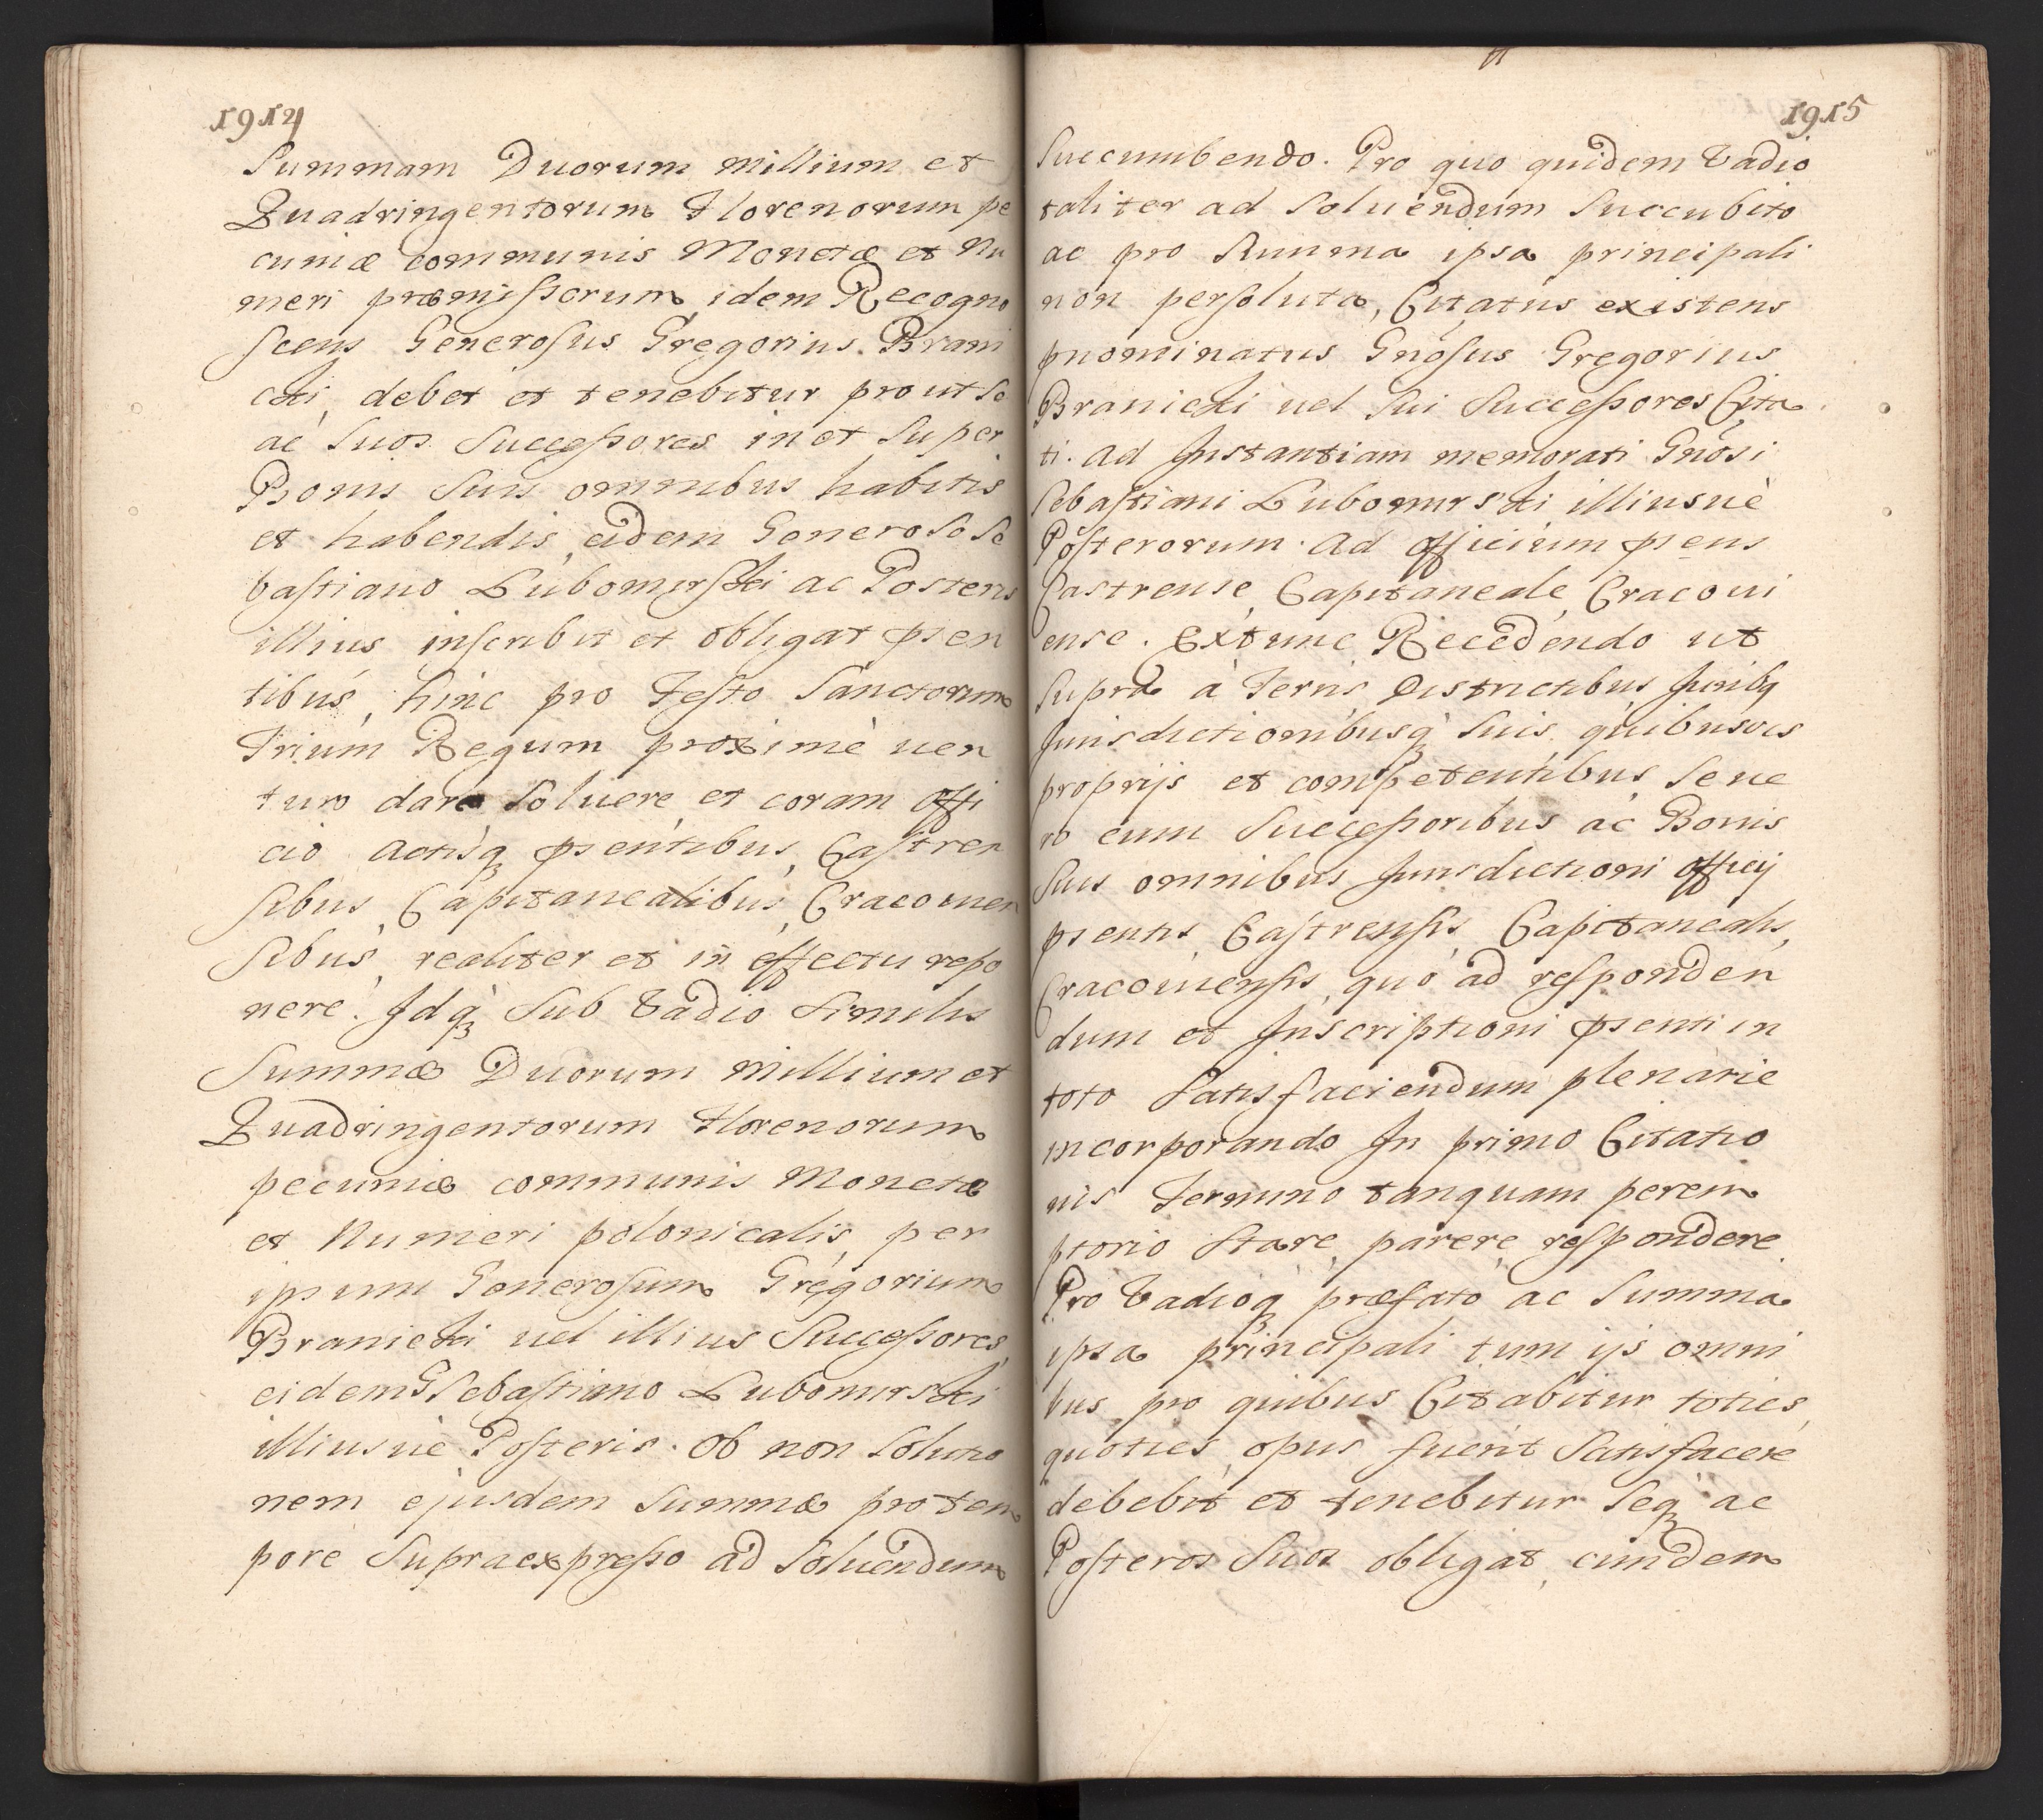 1914
Summam Duorum millium et
Quadringentorum Florenorum pe
cuniæ communis Monetæ et Nu
meri præmissorum, idem Recogno
scens Generosus Gregorius Brani
cki, debet et tenebitur prout se
ac Suos Successores in et Super
Bonis Suis omnibus habitis
et habendis, eidem Generoso Se
bastiano Lubomirski ac Posteris
illius inscribit et obligat psen
tibus, hinc pro Festo Sanctorum
Trium Regum proximè uen
turo dare Soluere, et coram offi
cio Actisq psentibus, Castren
sibus, Capitanealibus, Cracouien
sibus, realiter et in effectu repo
nere. Idq Sub Vadio Similis
Summæ Duorum Millium et
Quadringentorum Florenorum
pecuniæ communis Monetæ
et Numeri polonicalis, per
ipsum Generosum Gregorium
Branicki uel illius Successores,
eidem G Sebastiano Lubomirski
illiusuè Posteris. Ob non Solutio
nem ejusdem Summæ pro tem
pore Supraexpresso ad Soluendum
1915
Succumbendo. Pro quo quidem Vadio
taliter ad Soluendum Succubito
ac pro Summa ipsa principali
non persoluta, Citatus existens
pnominatus Gnosus Gregorius
Branicki uel Sui Successores Cita
ti. Ad Instantiam memorati Gnosi
Sebastiani Lubomirski illiusuè
Posterorum. Ad officium psens
Castrense, Capitaneale, Cracoui
ense. Extunc Recedendo ut
Supra à Terris Districtibus Juribq
Jurisdictionibusq Suis quibusvis
proprijs et competentibus, Se ue
ro cum Successoribus ac Bonis
Suis omnibus Jurisdictioni officij
psentis, Castrensis, Capitanealis,
Cracouiensis, quo ad responden
dum et Inscriptioni psenti in
toto Satisfaciendum plenarie
incorporando In primo Citatio
nis Termino tanquam perem
ptorio Stare, parere, respondere.
Pro Vadioq præfato ac Summa
ipsa principali tum ijs omni
bus pro quibus Citabitur toties,
quoties opus fuerit Satisfacere
debebit et tenebitur Seq ac
Posteros Suos obligat, eundem